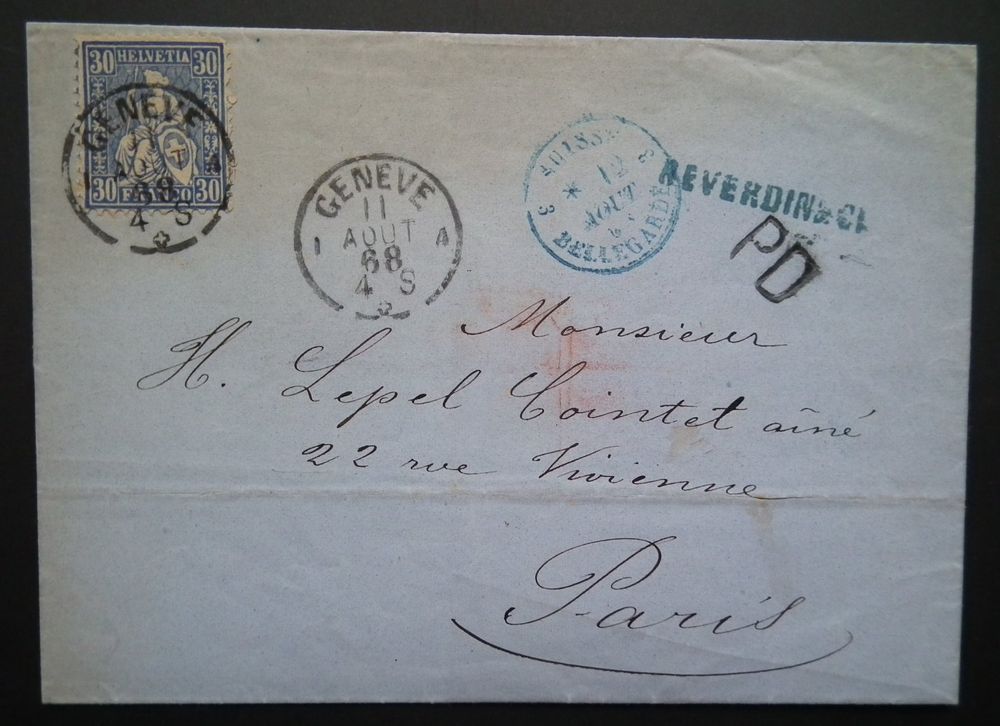 30 HELVETIA 30
30 FRANCO 30
GENEVE
AOUT
68
4 S
GENEVE
11
I AOUT A
68
4 S
SUISSE
3 12 3
AOUT
BELLEGARDE
REVERDIN & CIE
PD
Monsieur
H. Lepel Cointet aîné
22 rue Vivienne
Paris